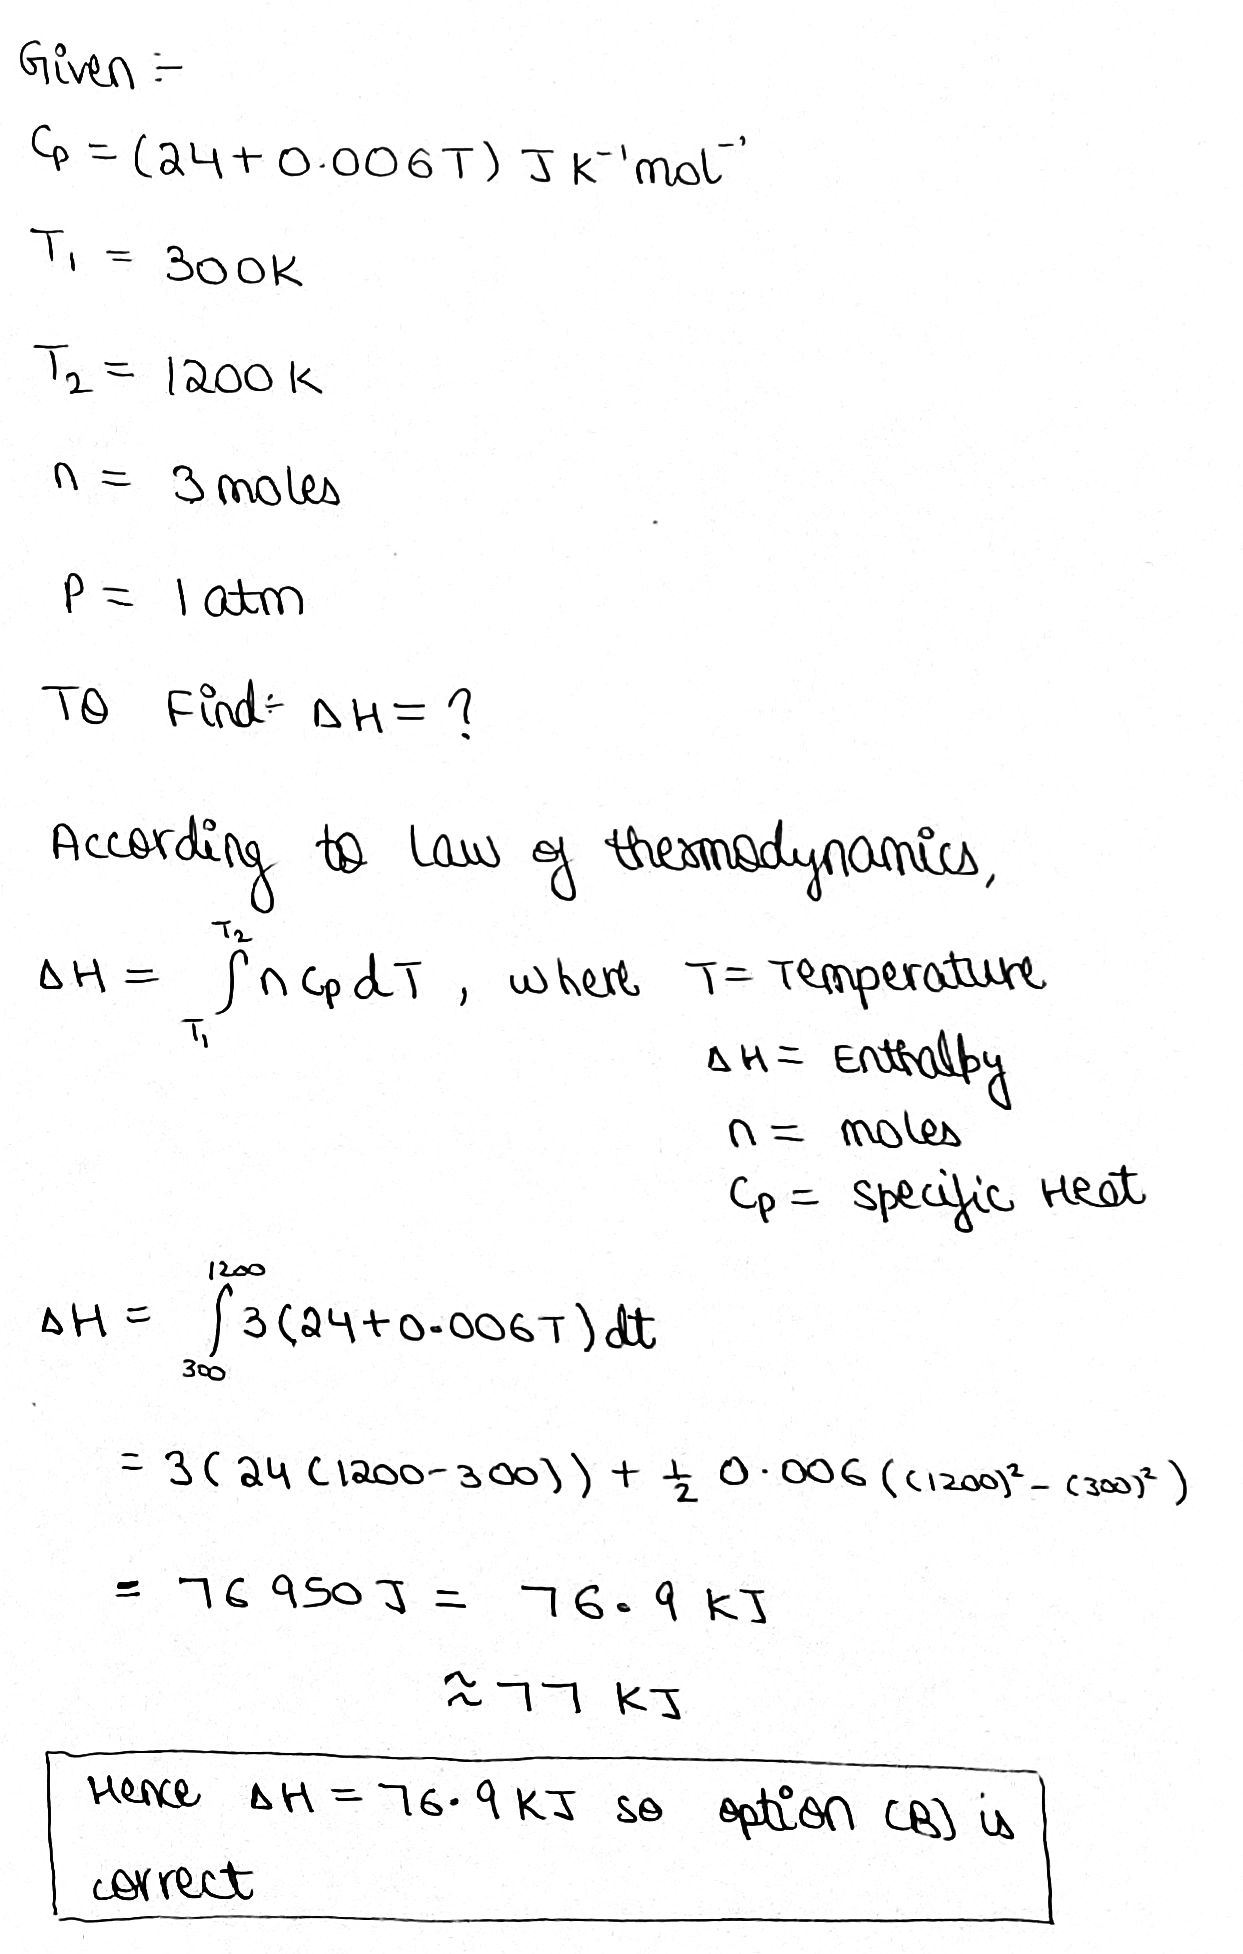 Given :-
Cp = (24 + 0.006T) J K⁻¹ mol⁻¹
T₁ = 300K
T₂ = 1200 K
n = 3 moles
P = 1 atm
To Find:- ΔH = ?
According to law of thermodynamics,
ΔH = ∫_{T₁}^{T₂} n Cp dT , where T = Temperature
ΔH = Enthalpy
n = moles
Cp = specific Heat
ΔH = ∫_{300}^{1200} 3(24 + 0.006T) dt
= 3(24(1200-300)) + 1/2 0.006((1200)² - (300)²)
= 76950J = 76.9 KJ
≈ 77 KJ
Hence ΔH = 76.9 KJ so option (B) is
correct